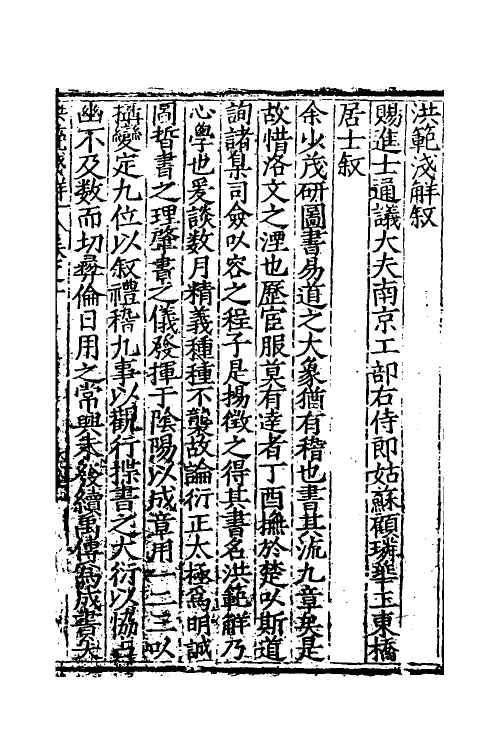 洪範淺解叙
賜進士通議大夫南京工部右侍郎姑蘇顧璘華玉東橋
居士叙
余少茂研圖書易道之大象猶有稽也書其流九章奥是
故惜洛文之湮也歷宦服莫有達者丁酉撫於楚以斯道
詢諸臬司僉以容之程子是揚徵之得其書名洪範解乃
心學也爰談數月精義種種不襲故論衍正太極爲明誠
圖晢書之理肇書之儀發揮于陰陽以成章用一二三以
撰變定九位以叙禮稽九事以觀行揲書之大衍以協占
幽不及數而切彝倫日用之常興朱發續禹傳爲成書矣